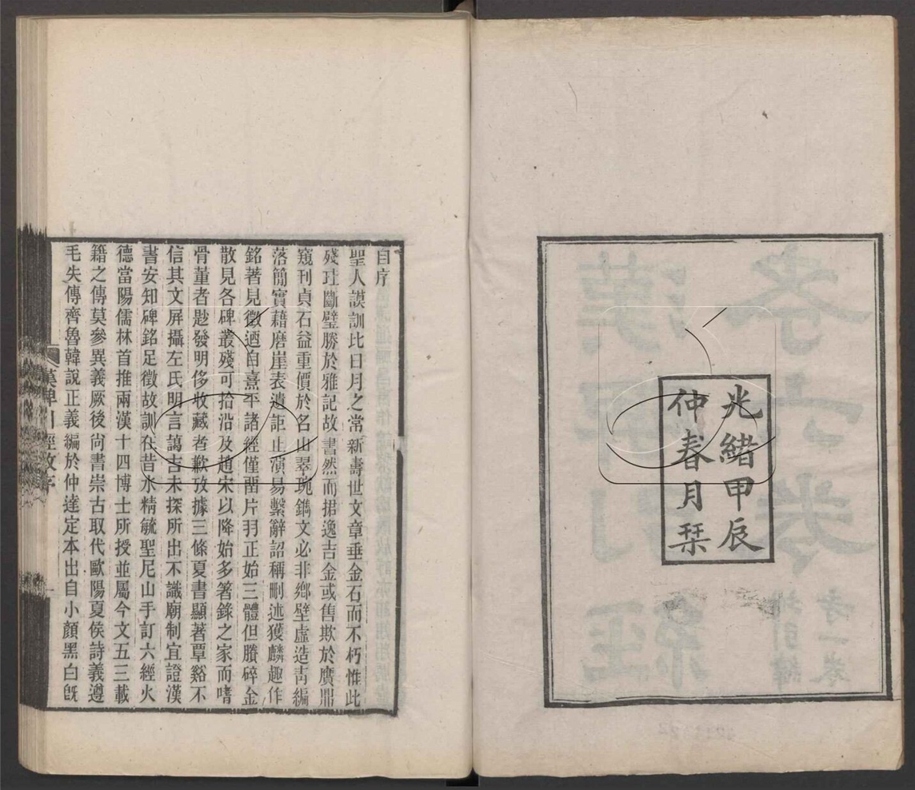 光緒甲辰
仲春月栞
自序
聖人謨訓比日月之常新壽世文章垂金石而不朽惟此
殘珪斷璧勝於雅記故書然而捃逸吉金或售欺於贋鼎
窺刊貞石益重價於名山翠琬鐫文必非鄉壁虛造靑編
落簡實藉磨崖表遺詎止演易繫辭詔稱刪述獲麟趣作
銘著見徵迺自熹平諸經僅畱片羽正始三體但賸碎金
散見各碑叢殘可拾沿及趙宋以降始多箸錄之家而嗜
骨董者尟發明侈收藏者歉攷據三條夏書顯著覃谿不
信其文屏攝左氏明言蔼吉未探所出不識廟制宜證漢
書安知碑銘足徵故訓在昔氷精毓聖尼山手訂六經火
德當陽儒林首推兩漢十四博士所授並屬今文五三載
籍之傳莫參異義厥後尚書崇古取代歐陽夏侯詩義遵
毛失傳齊魯韓說正義編於仲達定本出自小顏黑白旣
漢碑引經攷序